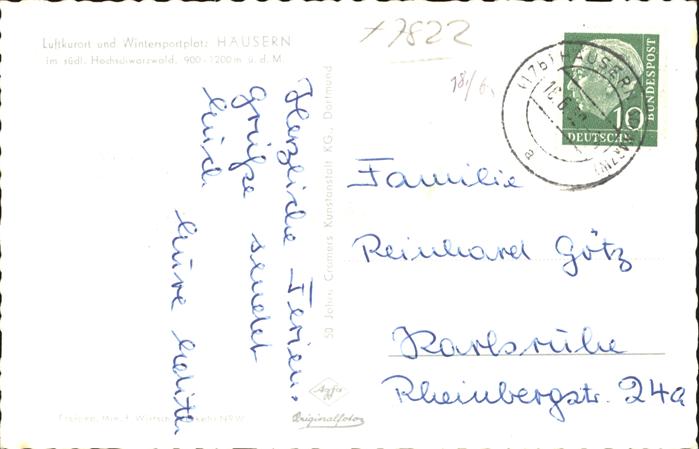 Luftkurort und Wintersportplatz HÄUSERN
im südl. Hochschwarzwald, 900-1200 m ü. d. M.
+7822
18/6.
(17b) HÄUSERN
a
10
DEUTSCHE
BUNDESPOST
Herzliche Ferien-
grüße sendet
Euch
Eure Edith
50 Jahre Cramers Kunstanstalt KG., Dortmund
Familie
Reinhard Götz
Karlsruhe
Rheinbergstr. 24a
Agfa
Originalfoto